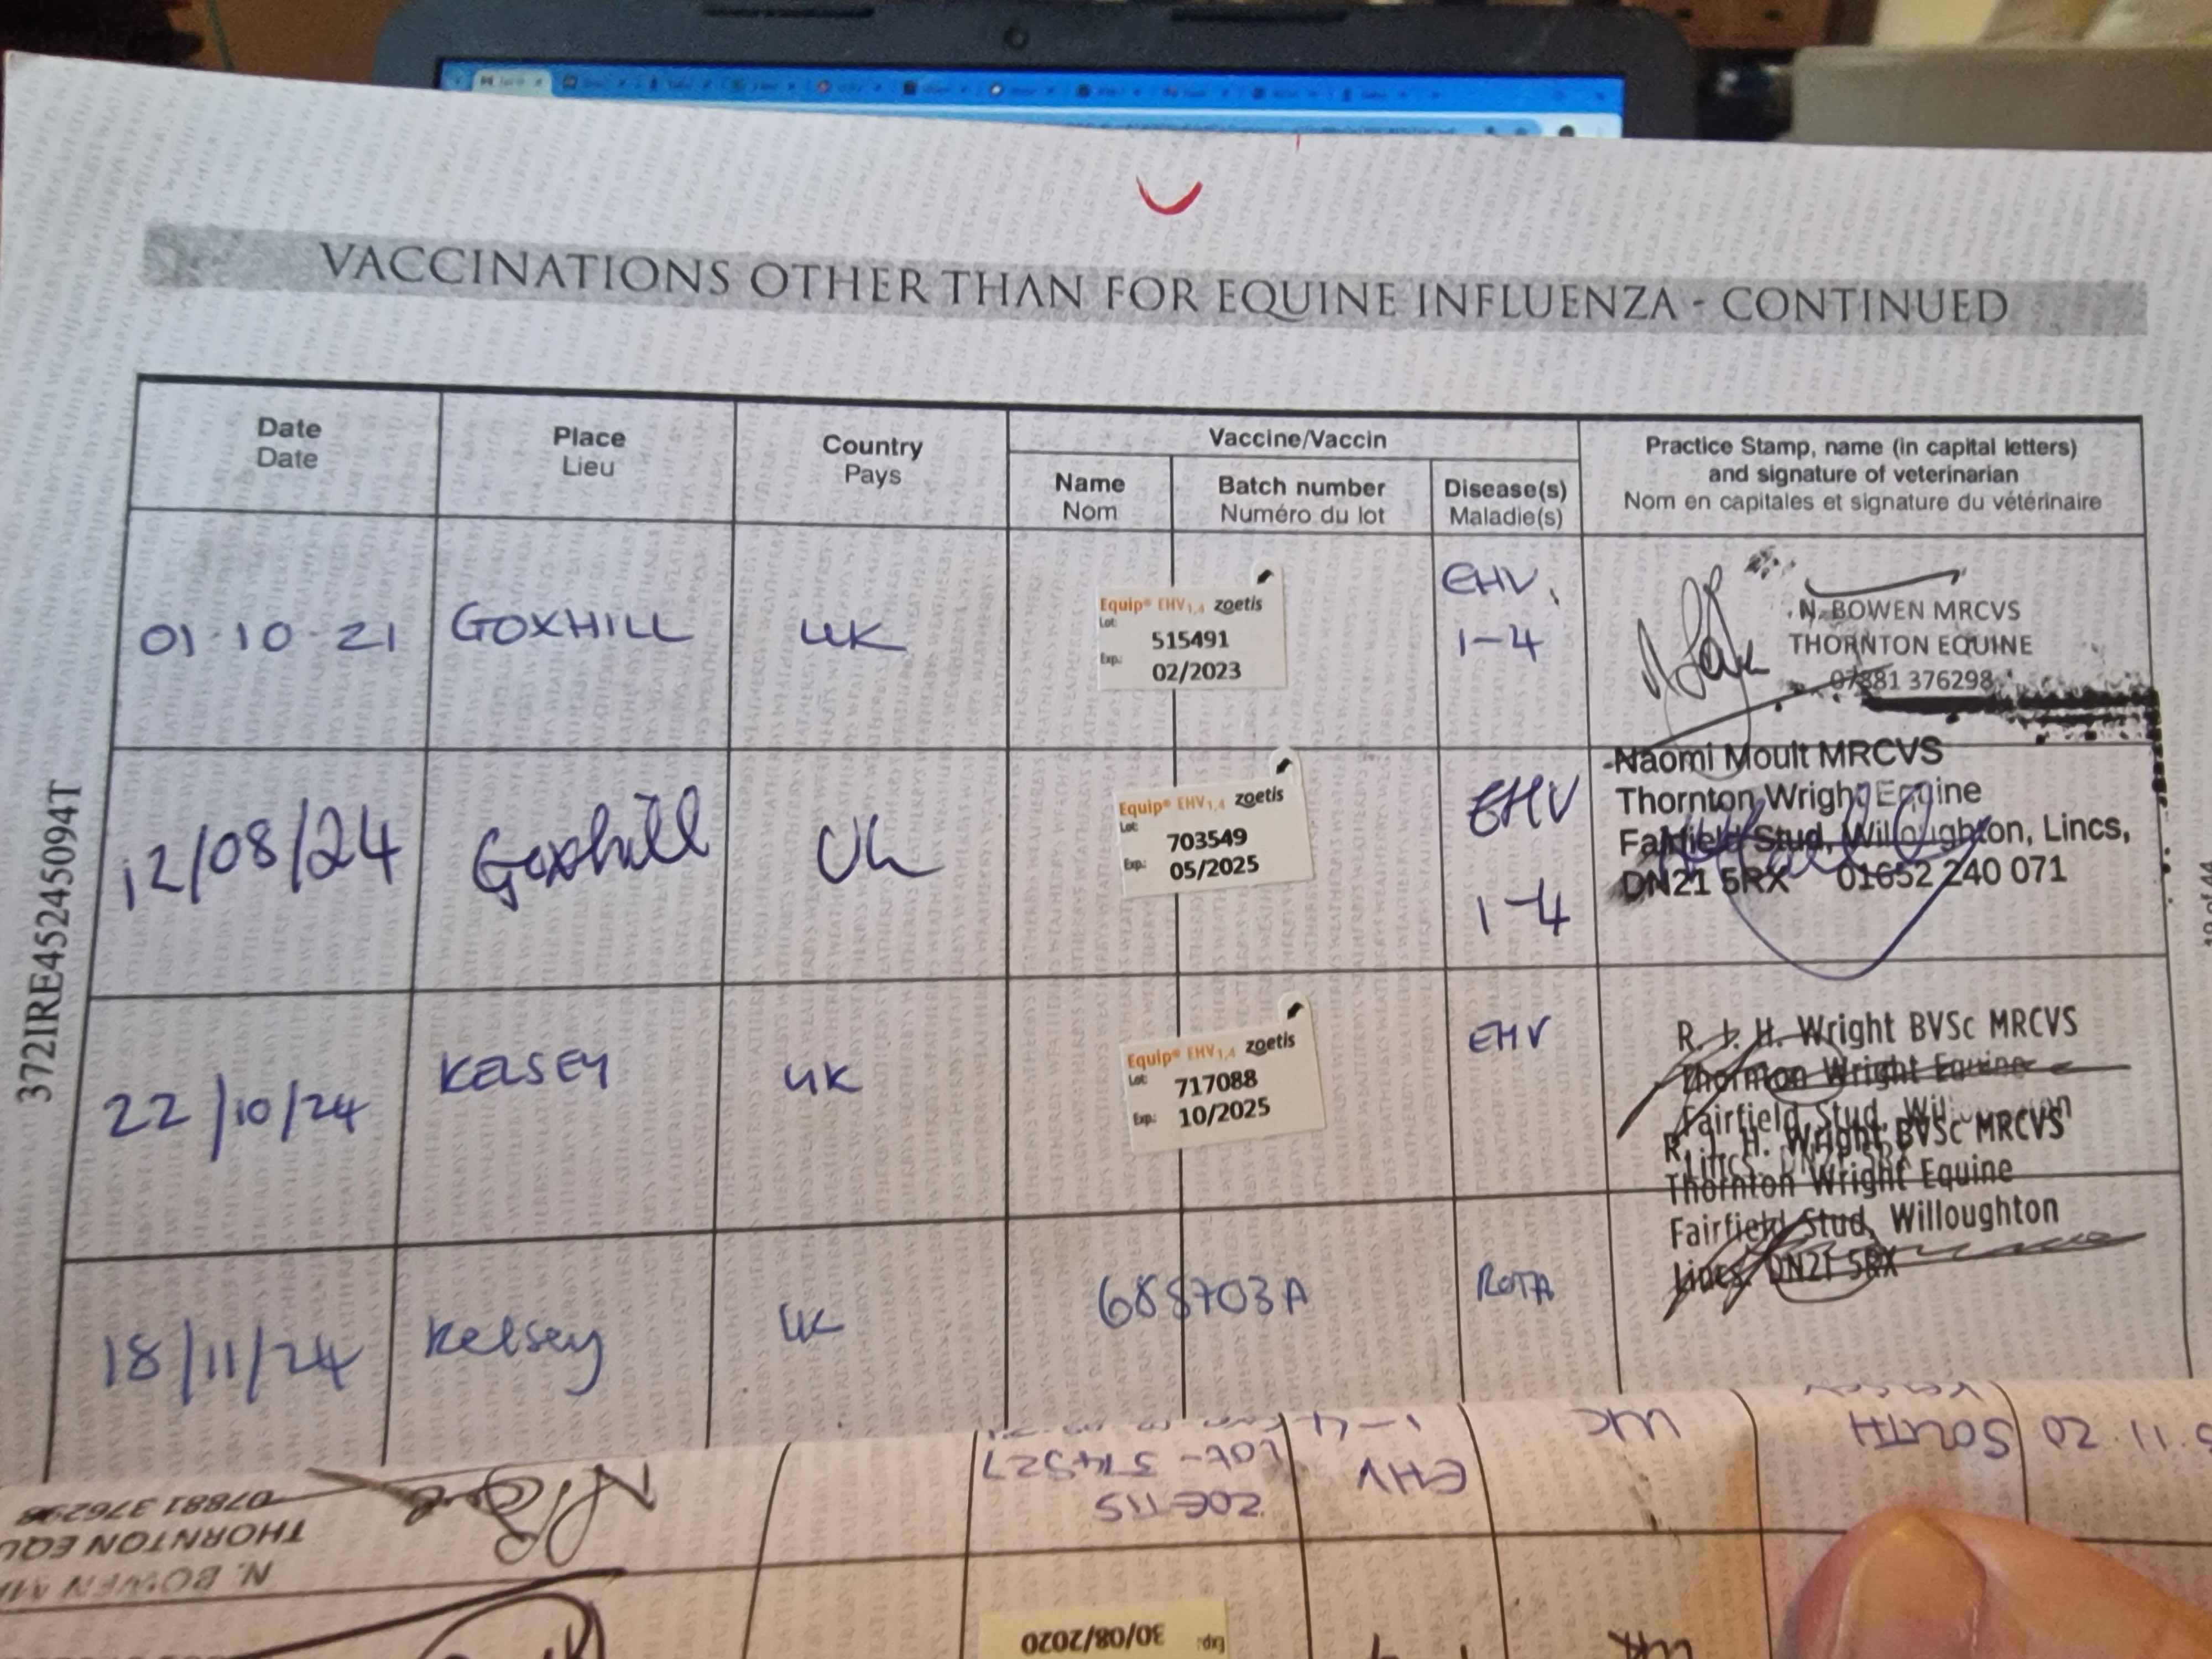 VACCINATIONS OTHER THAN FOR EQUINE INFLUENZA - CONTINUED
Date
Date
Place
Lieu
Country
Pays
Vaccine/Vaccin
Name
Nom
Batch number
Numéro du lot
Disease(s)
Maladie(s)
Practice Stamp, name (in capital letters)
and signature of veterinarian
Nom en capitales et signature du vétérinaire
01·10·21
GOXHILL
UK
Equip® EHV1,4 zoetis
Lot:
515491
Exp.:
02/2023
EHV
1-4
N. BOWEN MRCVS
THORNTON EQUINE
07881 376298
12/08/24
Goxhill
UK
Equip® EHV1,4 zoetis
Lot:
703549
Exp.:
05/2025
EHV
1-4
Naomi Moult MRCVS
Thornton Wright Equine
Fairfield Stud, Willoughton, Lincs,
DN21 5RX 01652 240 071
22/10/24
KELSEY
UK
Equip® EHV1,4 zoetis
Lot:
717088
Exp.:
10/2025
EHV
R. J. H. Wright BVSc MRCVS
Thornton Wright Equine
Fairfield Stud,
Lincs. DN21 5RX
18/11/24
Kelsey
UK
688703A
ROTA
R. J. H. Wright BVSc MRCVS
Thornton Wright Equine
Fairfield Stud, Willoughton
Lincs. DN21 5RX
372IRE45245094T
11.20
SOUTH
UK
EHV
1-4
ZOETIS
LOT- 374527
N. BOWEN
THORNTON EQU
07881 376298
Exp:
30/08/2020